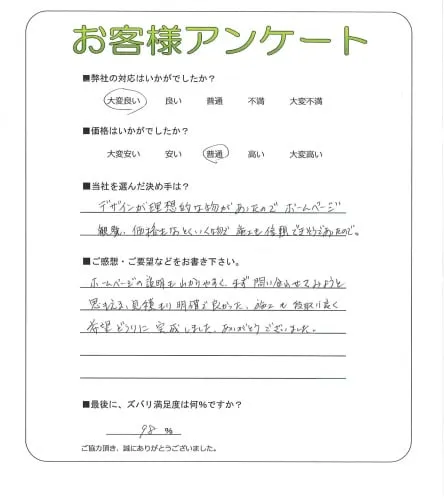 お客様アンケート
■弊社の対応はいかがでしたか?
大変良い 良い 普通 不満 大変不満
■価格はいかがでしたか?
大変安い 安い 普通 高い 大変高い
■当社を選んだ決め手は?
デザインが理想的な物があったので ホームページ
観覧、価格もなっとくいく物で 施工も信頼できそうであったので。
■ご感想・ご要望などをお書き下さい。
ホームページの説明もわかりやすく、まず 問い合わせてみようと
思もえる、見積もり 明確で良かった、施工も 段取り良く
希望どうりに 完成しました、ありがとうございました。
■最後に、ズバリ満足度は何%ですか?
98 %
ご協力頂き、誠にありがとうございました。